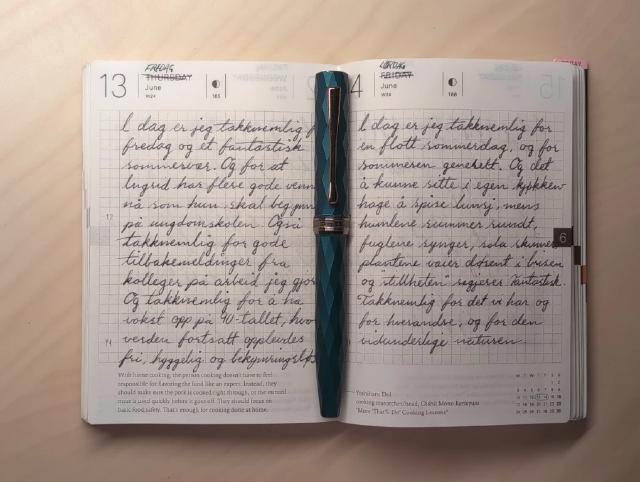 FREDAG
13 THURSDAY
June
W24
165
I dag er jeg takknemlig f
fredag og et fantastisk
sommervær. Og for at
Ingrid har flere gode venn
nå som hun skal begynn
på ungdomskolen. Også
takknemlig for gode
tilbakemeldinger fra
kolleger på arbeid jeg gjor
Og takknemlig for å ha
vokst opp på 90-tallet, hvo
verden fortsatt opplevdes
fri, hyggelig og bekymringsløs
12
19
With home cooking, the person cooking doesn't have to feel
responsible for flavoring the food like an expert. Instead, they
should make sure the pork is cooked right through, or the minced
meat is used quickly before it goes off. They should focus on
basic food safety. That's enough for cooking done at home.
LØRDAG
4 FRIDAY
June
W24
166
I dag er jeg takknemlig for
en flott sommerdag, og for
sommeren generelt. Og det
å kunne sitte i egen kjøkken
hage å spise lunsj, mens
humlene summer rundt,
fuglene synger, sola skinner
plantene vaier døsent i brisen
og "stillheten" regjerer. Fantastisk.
Takknemlig for det vi har og
for hverandre, og for den
vidunderlige naturen.
6
Yoshiharu Doi
cooking researcher/head, Oishii Mono Kenkyujo
"More 'That'll Do' Cooking Lessons"